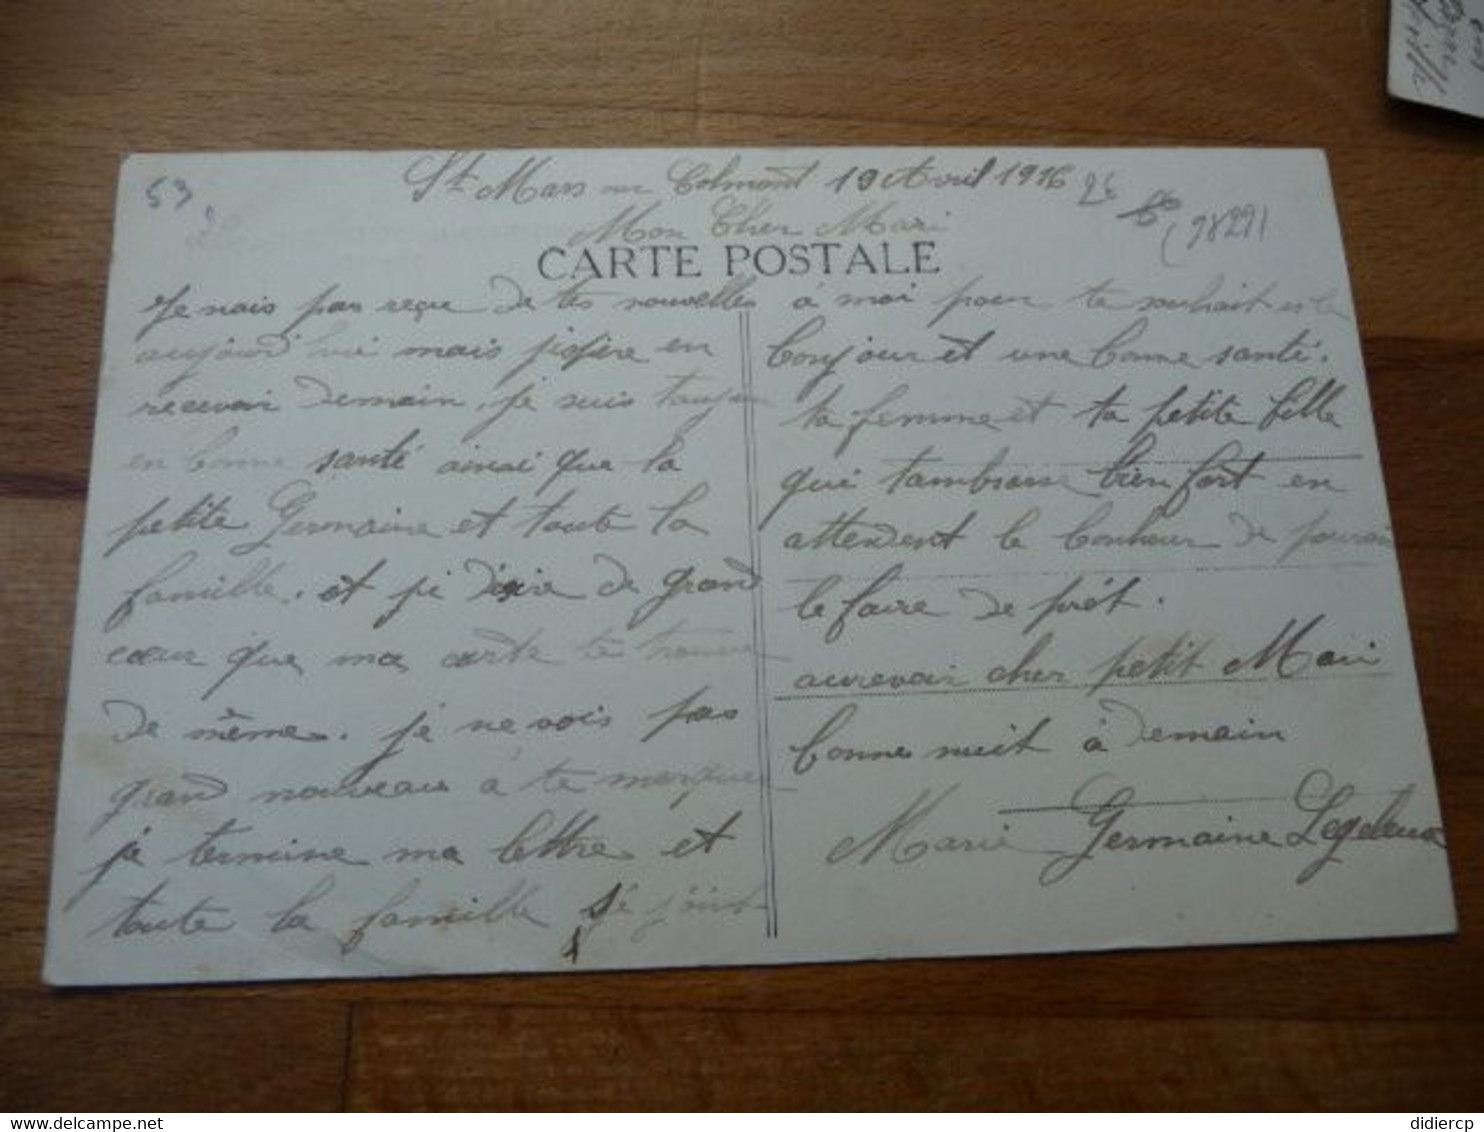 53
St Mars sur Colmont 19 Avril 1916
26
98291
Mon Cher Mari
CARTE POSTALE
Je nais pas reçue de tes nouvelles
aujourd'hui mais jispère en
recevoir demain. je suis toujour
en bonne santé ainsi que la
petite Germaine et toute la
famille. et je disire de grand
cœur que ma carte te trouve
de même. je ne vois pas
grand nouveau à te marquer
je termine ma lettre et
toute la famille se joint
à moi pour te souhait
bonjour et une bonne santé.
ta femme et ta petite fille
qui tambrasse bien fort en
attendent le bonheur de pouvoir
le faire de prèt.
aurevoir cher petit Mari
bonne nuit à demain
Marie Germaine
didiercp